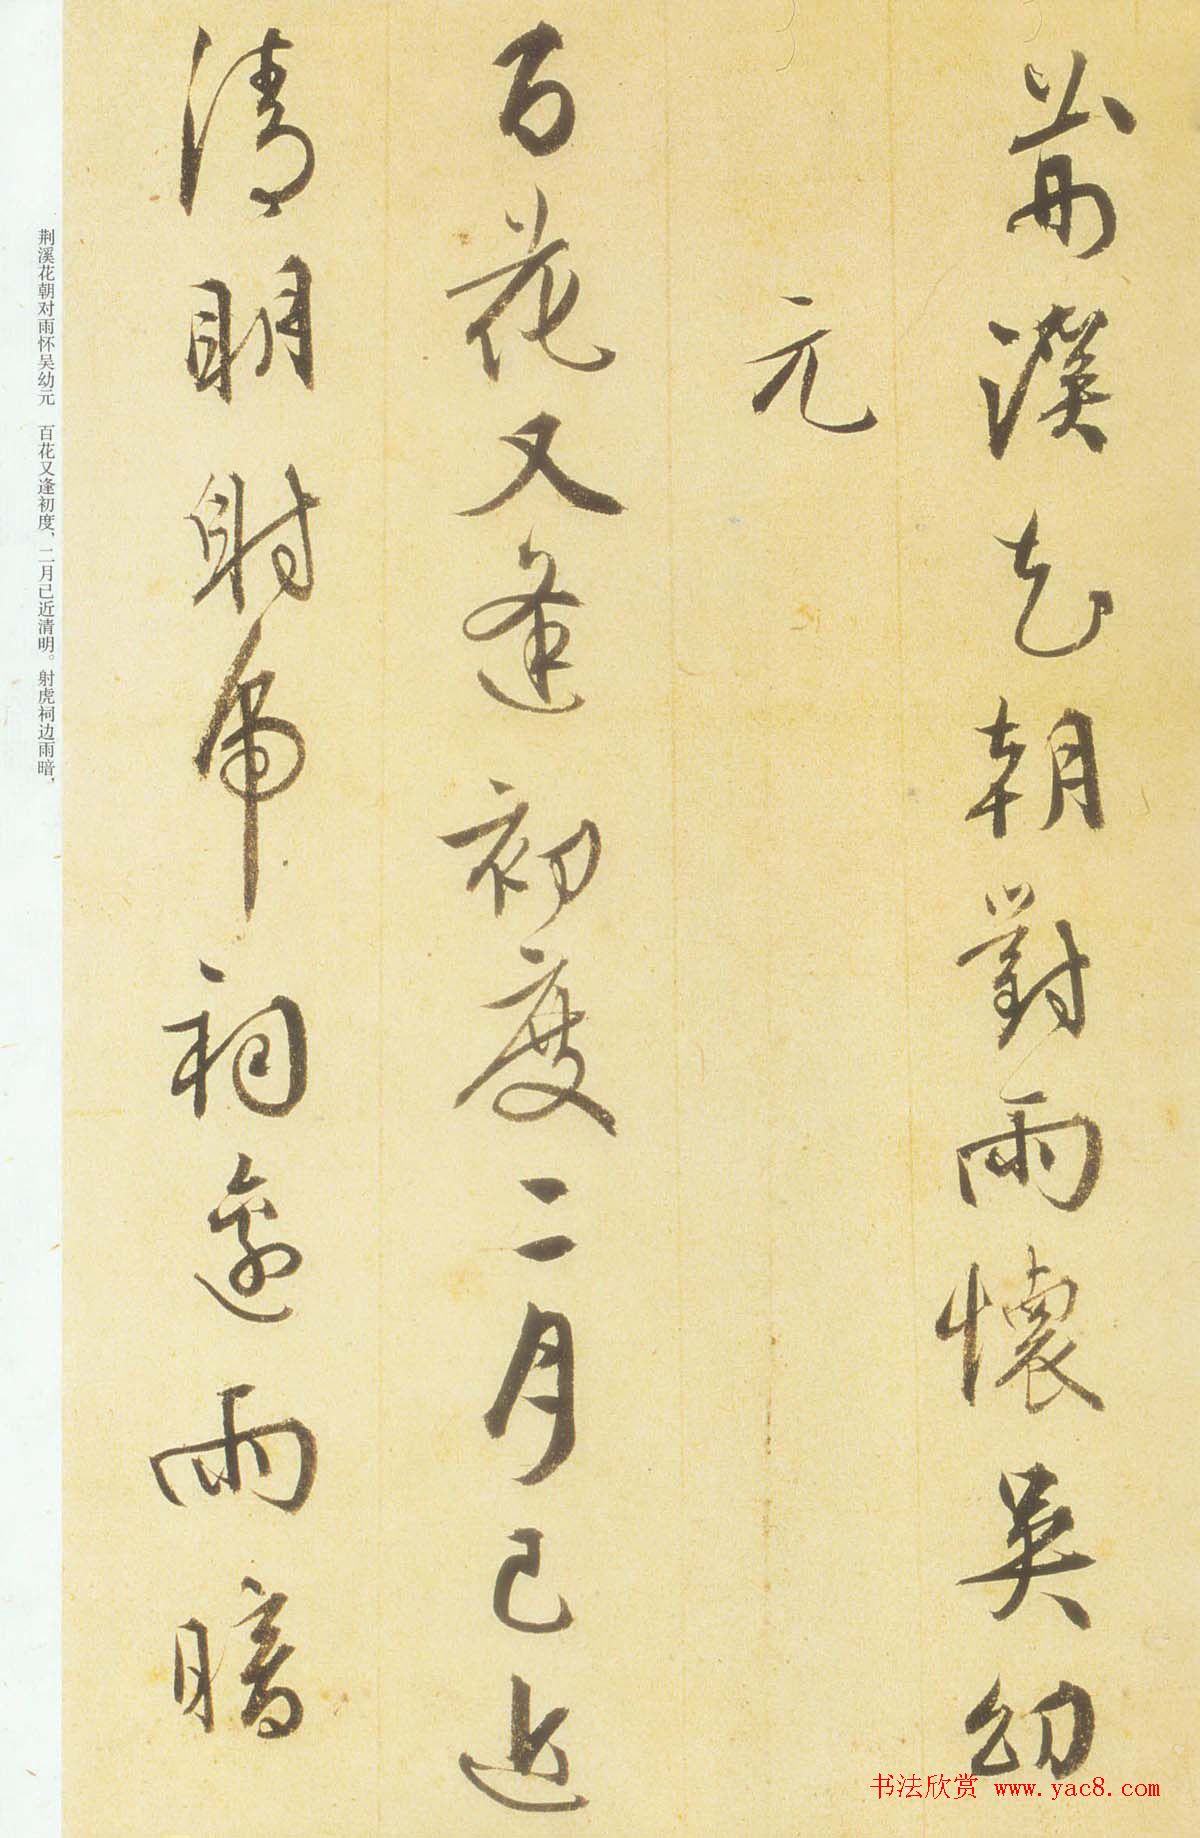 荊溪花朝對雨懷吳幼
元
百花又逢初度二月已近
清明射虎祠邊雨暗
荆溪花朝对雨怀吴幼元　百花又逢初度，二月已近清明。射虎祠边雨暗，
书法欣赏 www.yac8.com